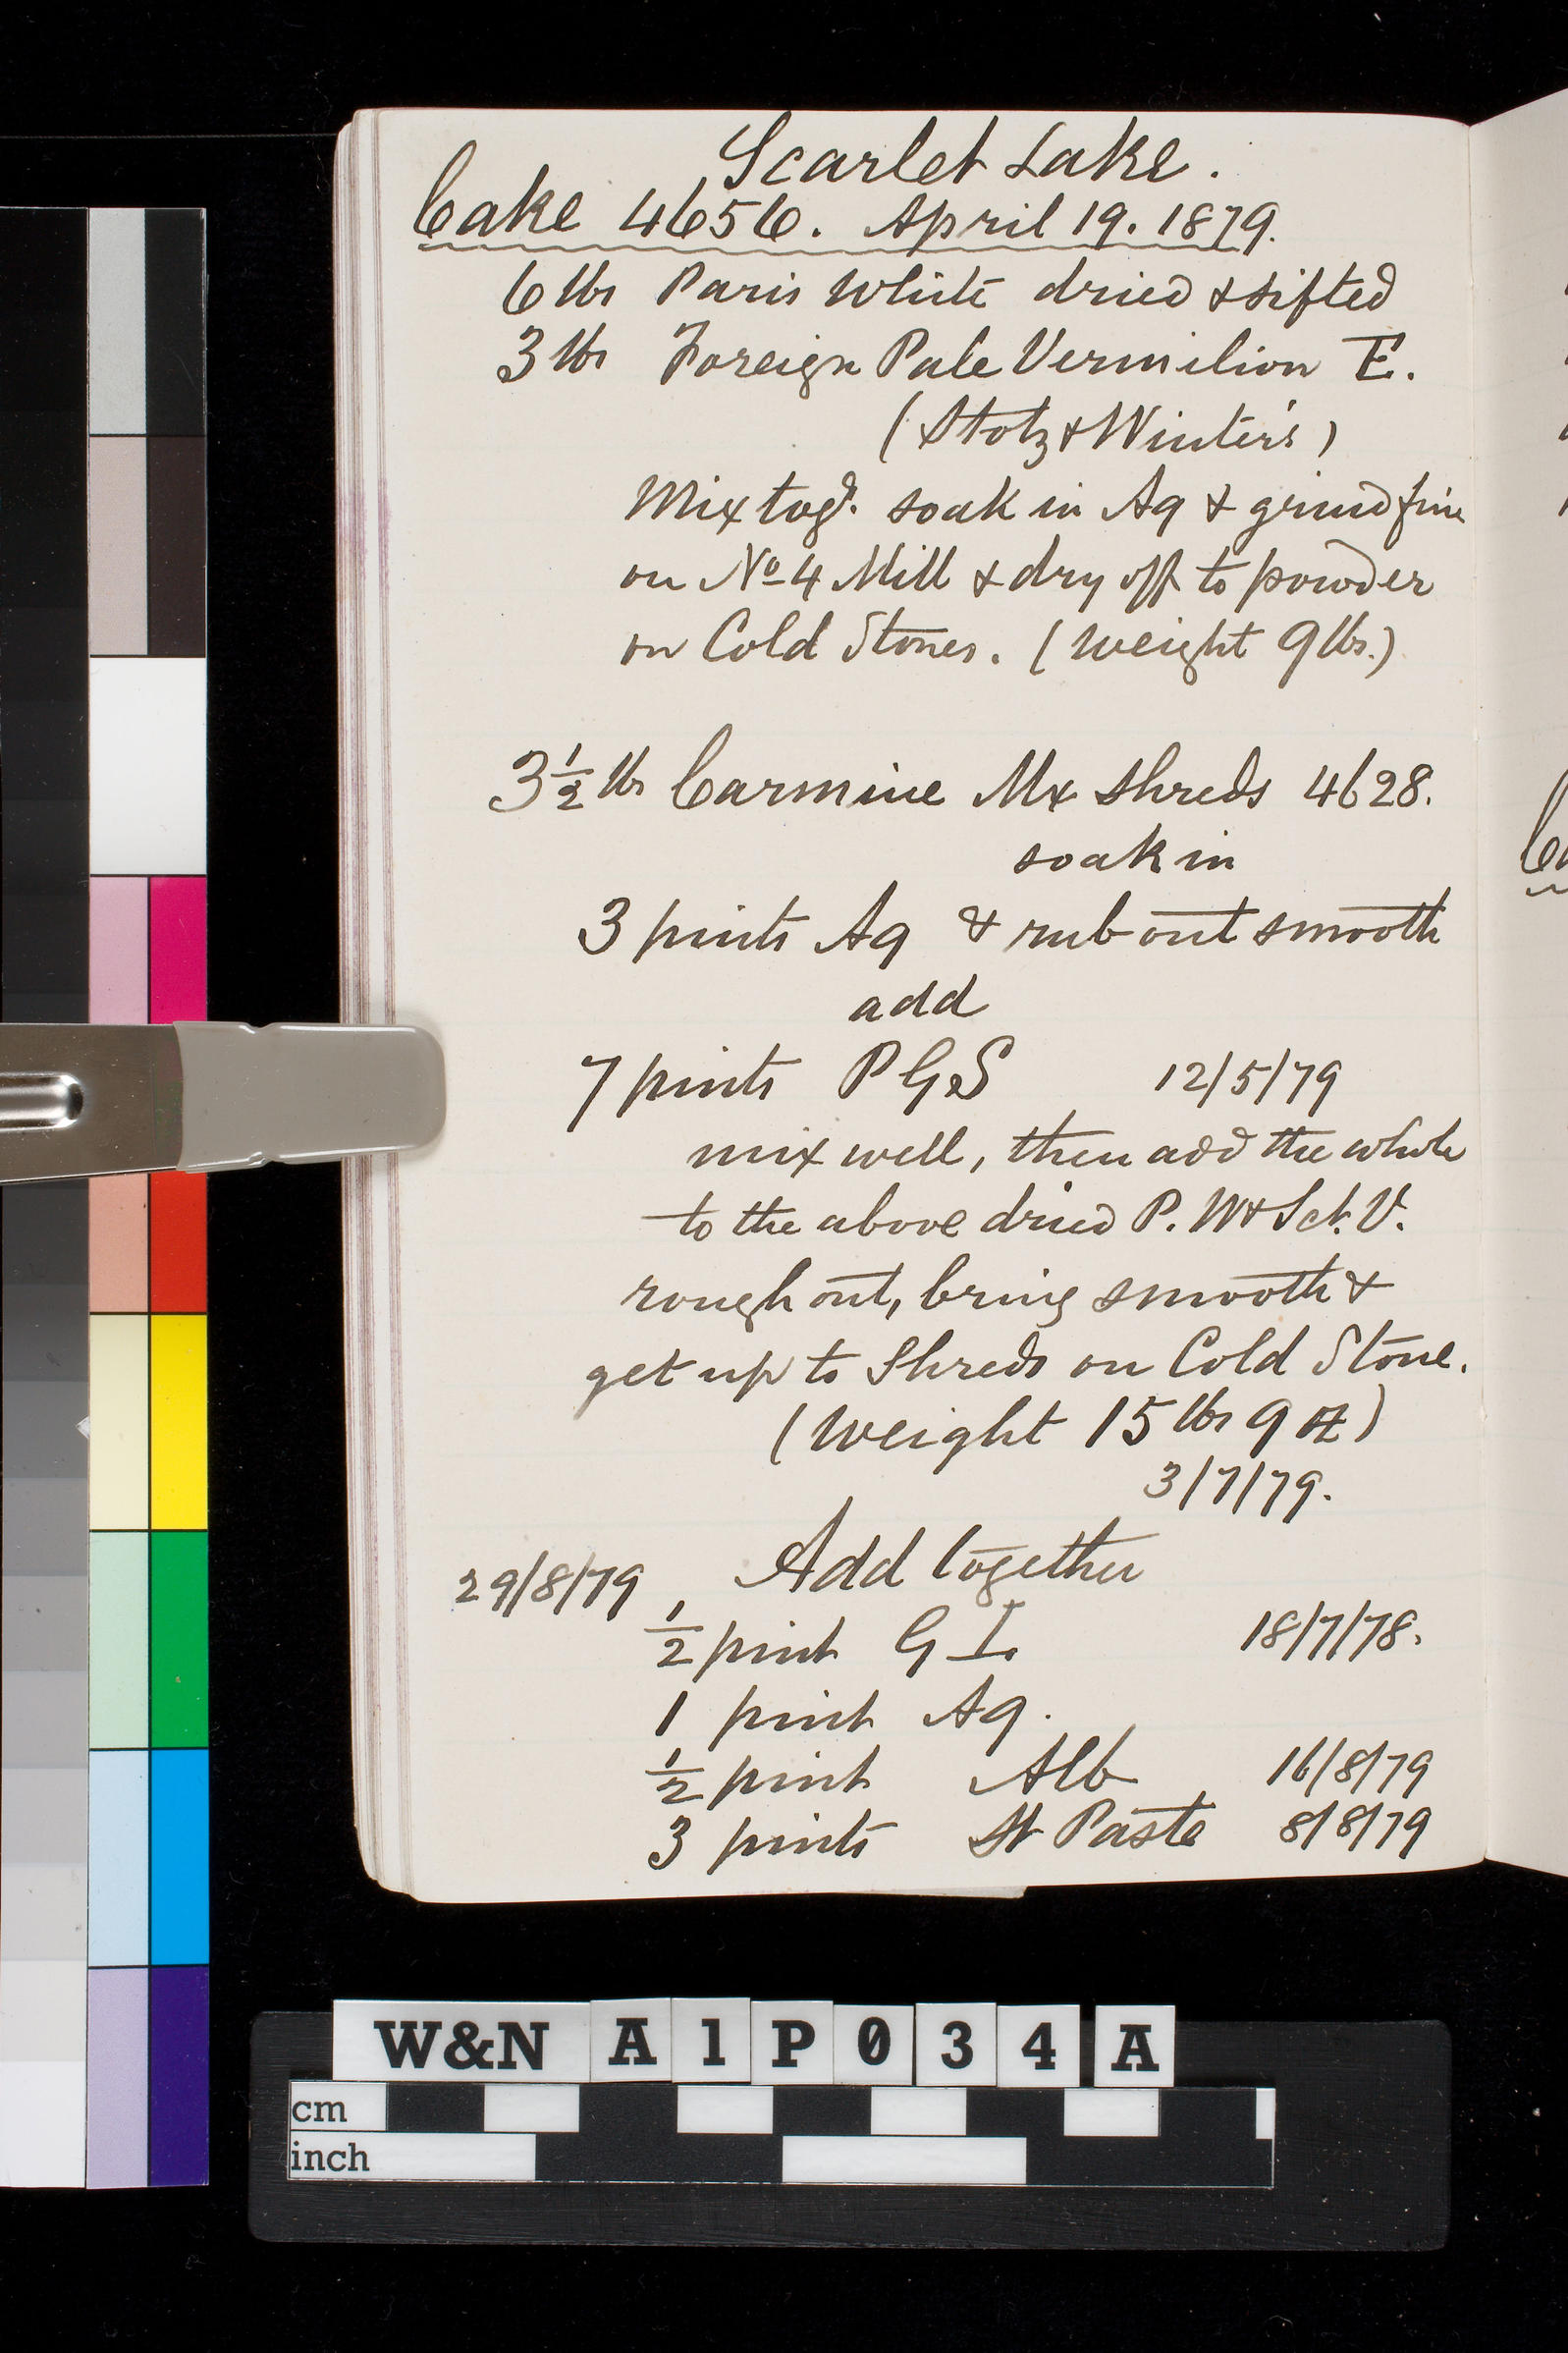 Scarlet Lake.
Cake 4656. April 19. 1879.
6 lbs Paris White dried & sifted
3 lbs Foreign Pale Vermilion E.
(Stotz & Winter's)
Mix togr. soak in Aq & grind fine
on No 4 Mill & dry off to powder
on Cold Stones. (Weight 9 lbs.)
3 1/2 lbs Carmine Mx Shreds 4628.
soak in
3 pints Aq & rub out smooth
add
7 pints P G S 12/5/79
mix well, then add the whole
to the above dried P. W & Sct. V.
rough out, bring smooth &
get up to Shreds on Cold Stone.
(Weight 15 lbs 9 oz)
3/7/79.
Add together
29/8/79
1/2 pint G I. 18/7/78.
1 pint Aq.
1/2 pint Alb 16/8/79
3 pints St Paste 8/8/79
W&N A1P034A
cm
inch